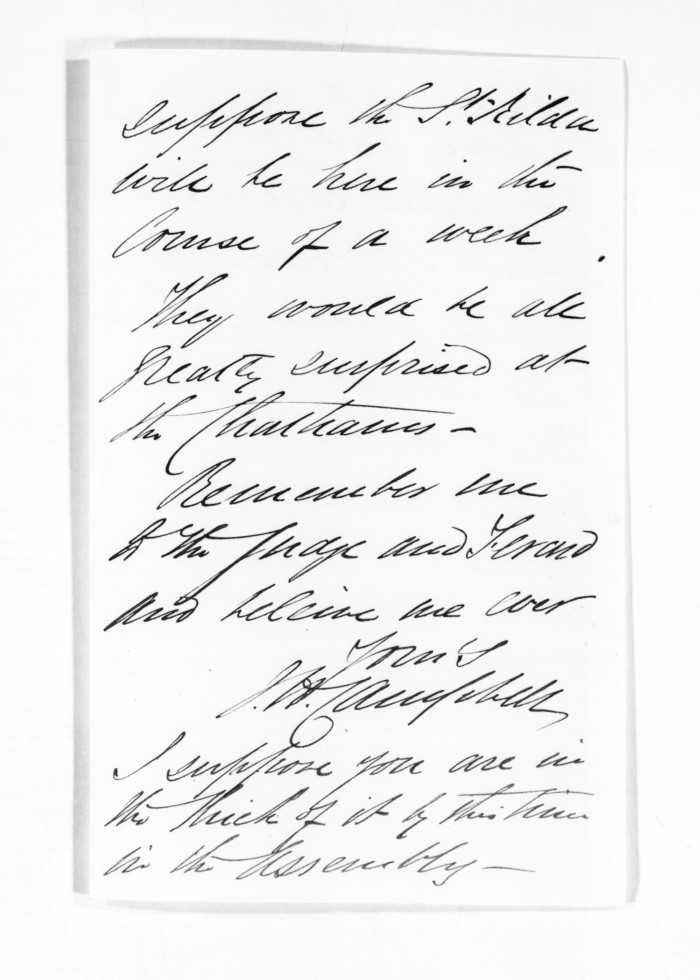 suppose the St Kilda
will be here in the
Course of a week.
They would be all
greatly surprised at
the Chathams —
Remember me
to the Judge and
and beleive me ever
Yours
Campbell
I suppose you are in
the thick of it by this time
in the Assembly —